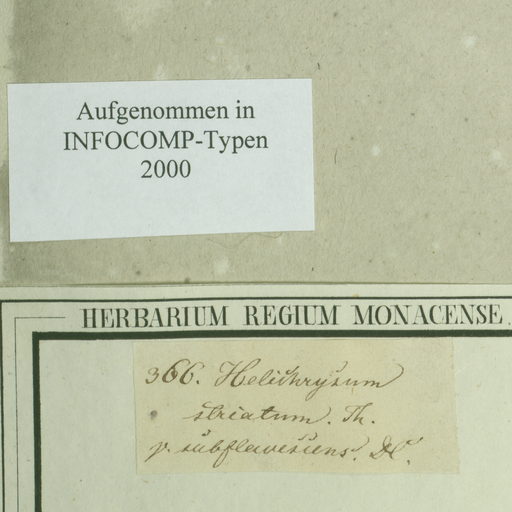 Aufgenommen in
INFOCOMP-Typen
2000
HERBARIUM REGIUM MONACENSE.
366. Helichrysum
striatum. Th.
γ. subflavescens. DC.